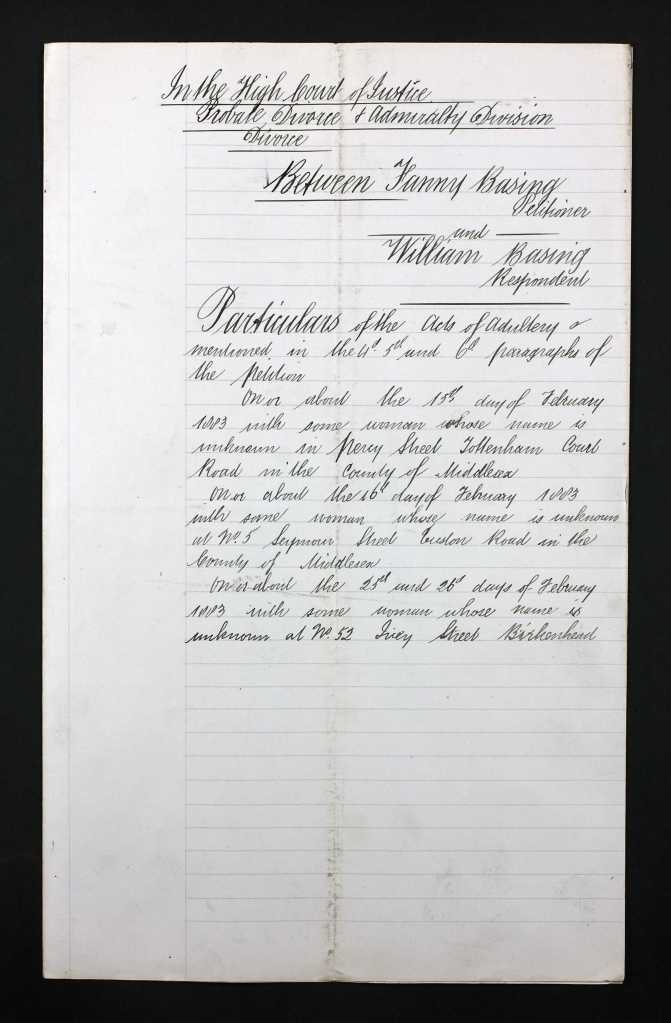 In the High Court of Justice
Probate, Divorce & Admiralty Division
Divorce
Between Fanny Basing
Petitioner
and
William Basing
Respondent
Particulars of the Acts of adultery
mentioned in the 4th 5th and 6th paragraphs of
the Petition
On or about the 15th day of February
1883 with some woman whose name is
unknown in Percy Street Tottenham Court
Road in the County of Middlesex
On or about the 16th day of February 1883
with some woman whose name is unknown
at No. 5 Seymour Street Euston Road in the
County of Middlesex
On or about the 25th and 26th days of February
1883 with some woman whose name is
unknown at No. 52 Street Birkenhead